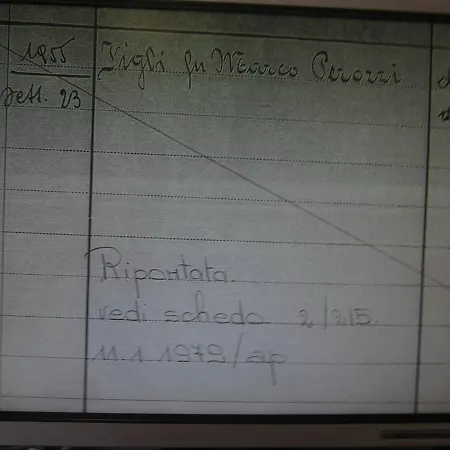 1955
Sett. 23
Figli fu Marco Perozzi
Riportata
vedi scheda 2/215
11.1.1979/ap